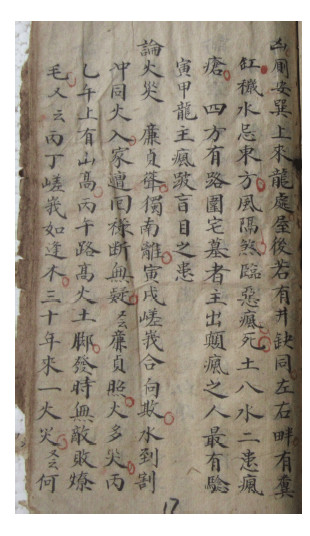 凶厠安巽上來龍處屋後若有井訣同左右畔有糞
缸穢水忌東方風隔煞臨惡瘋死土八水二患瘋
瘡 四方有路圍宅墓者主出顛瘋之人最有驗
寅甲龍主瘋跛盲目之患
論火災 廉貞聳獨南離寅戌嵯峩合向欺水到割
冲同火入家遭回祿断無疑又云廉貞照火多尖丙
乙午上有山高丙午路高火土脚發時無敵敗燎
毛又云丙丁嵯峩如逢木三十年來一火災又云何
17